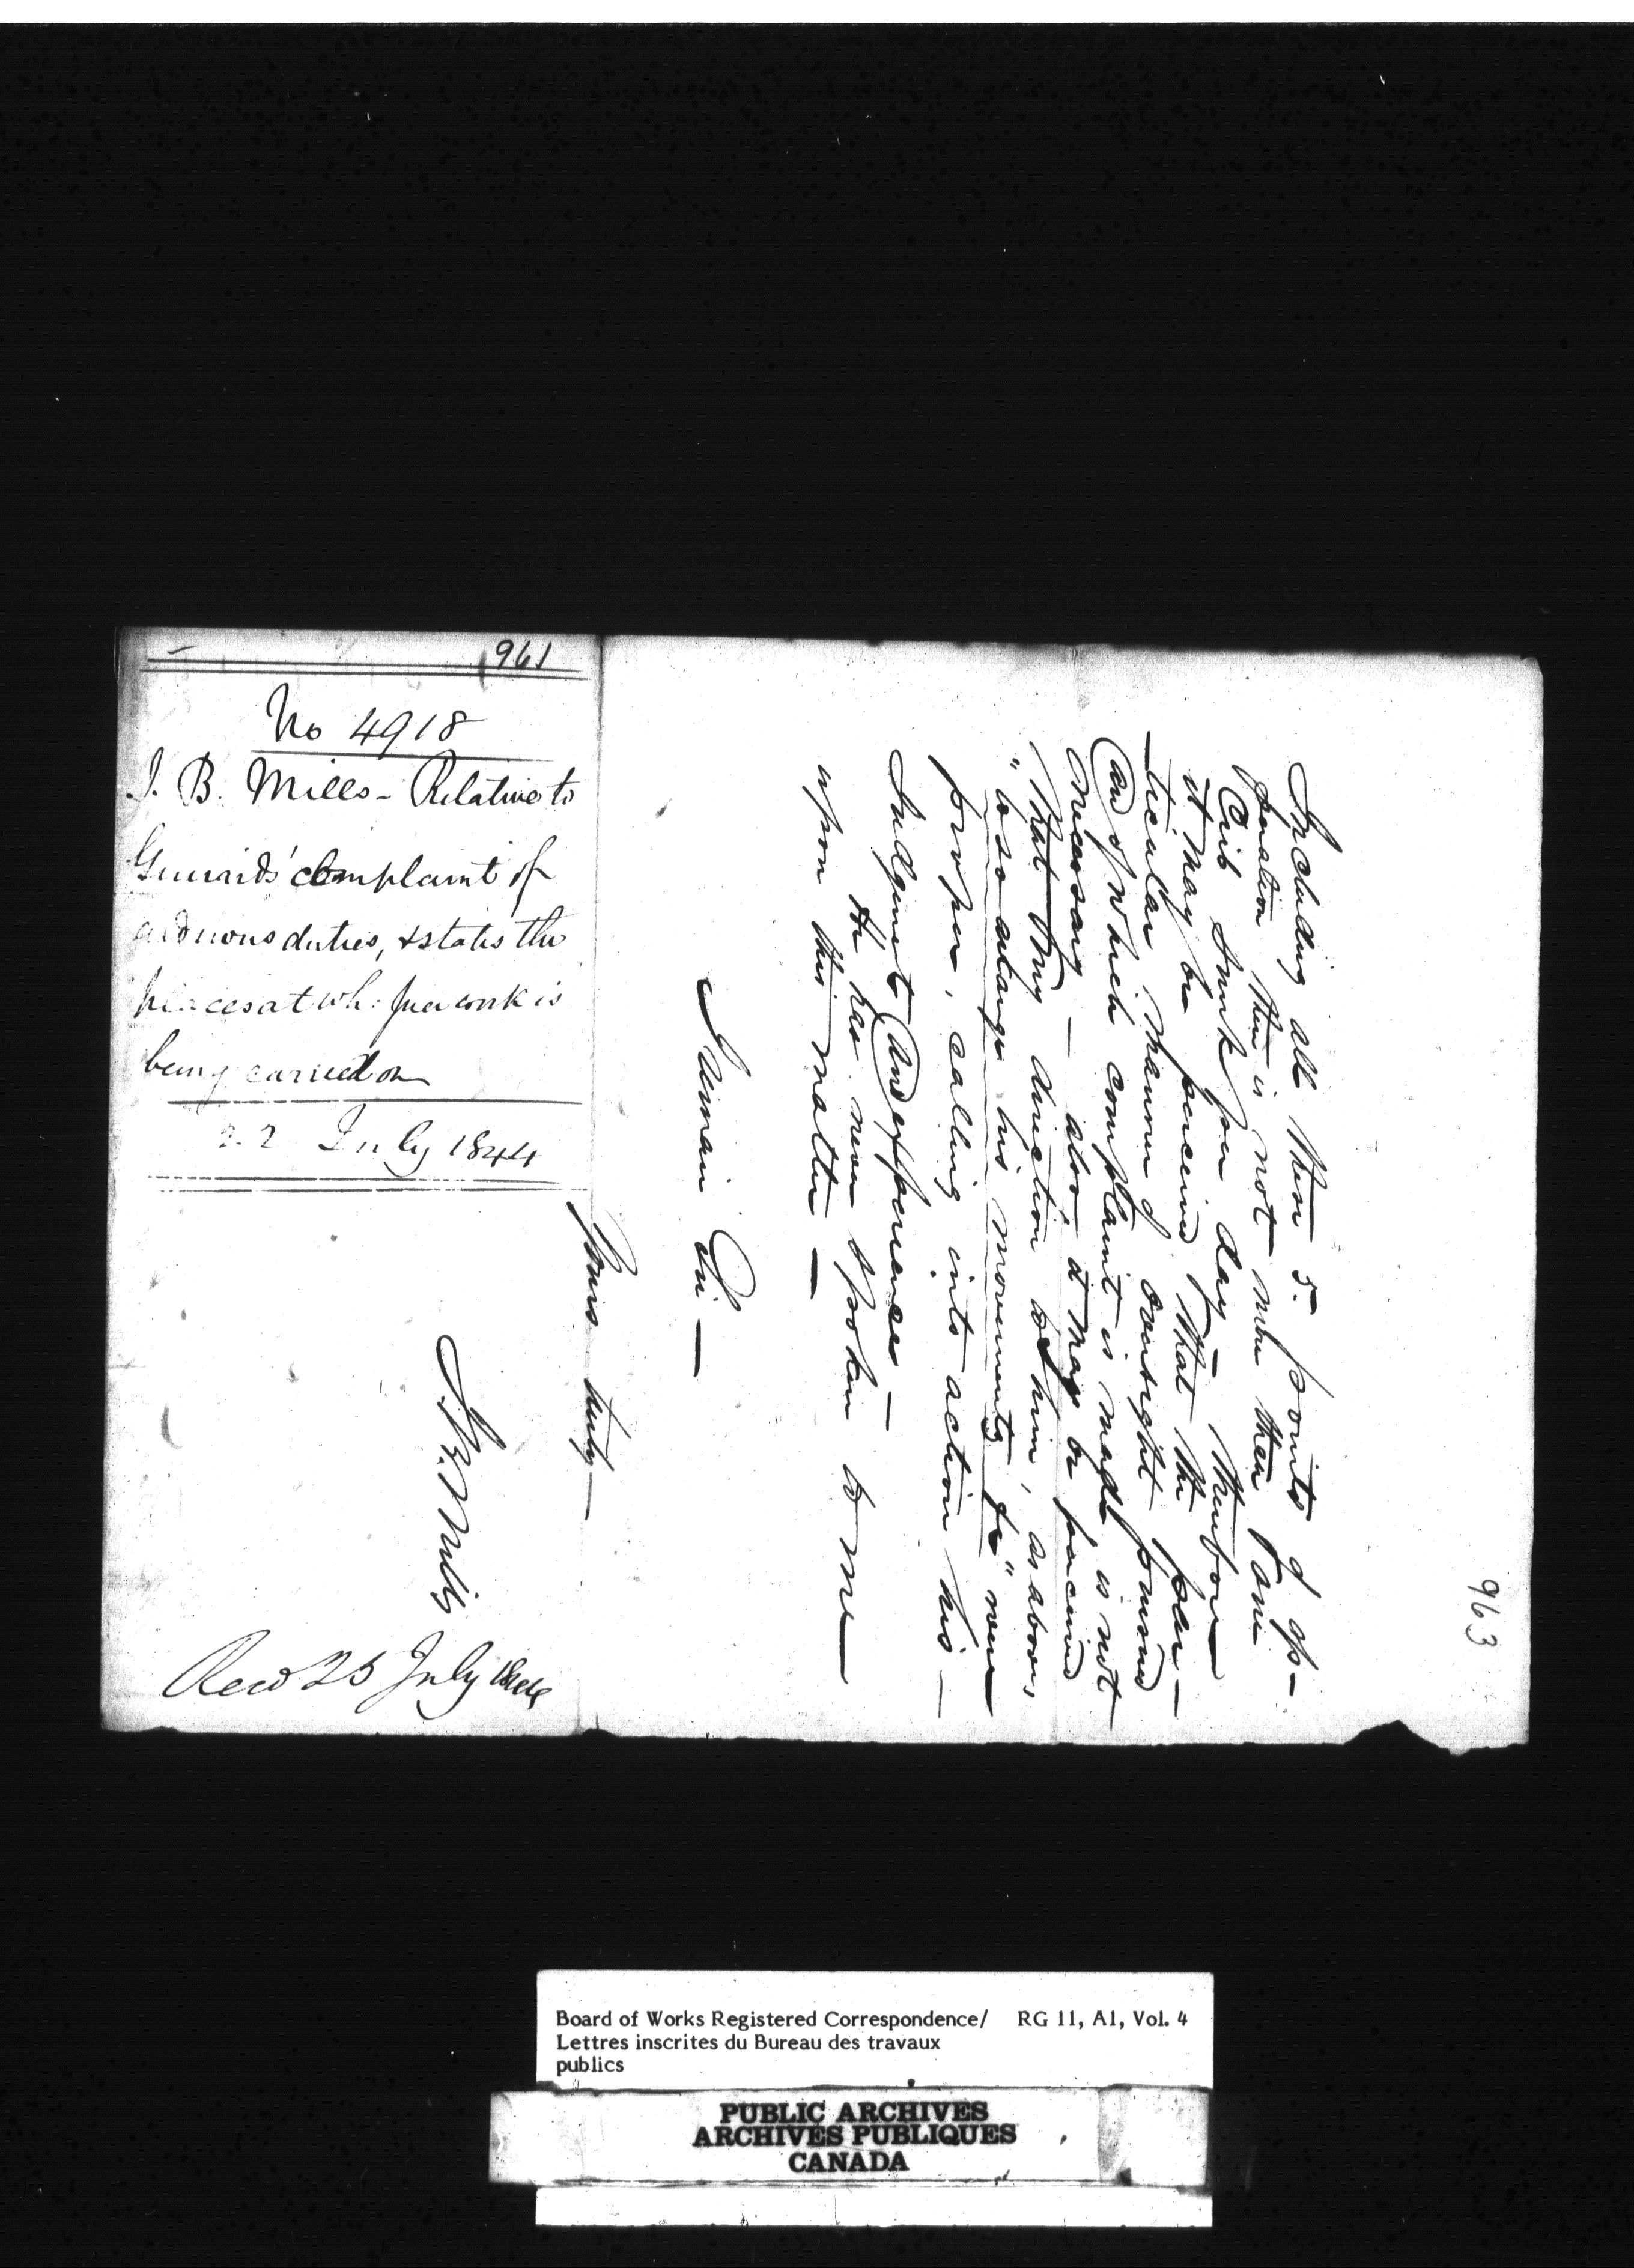 961
No 4918
J. B. Mills - Relative to
complaint of
arduous duties, & states the
places at wh: pier work is
being carried on
22 July 1844
Recd 25 July 1844
963
Including all then 5. points of op-
peration there is not more than one
Crib Sunk per day - Therefore
it may be perceived that the par-
ticular manner of oversight
and of which complaint is made, is not
necessary - also, it may be perceived
that my direction to him, as above,
"to so arrange his movements &c" were
proper, calling into action his
Judgment and experience -
He has never spoken to me
upon this matter -
I remain Sir -
Yours truly -
J. B. Mills
Board of Works Registered Correspondence/ RG 11, A1, Vol. 4
Lettres inscrites du Bureau des travaux
publics
PUBLIC ARCHIVES
ARCHIVES PUBLIQUES
CANADA